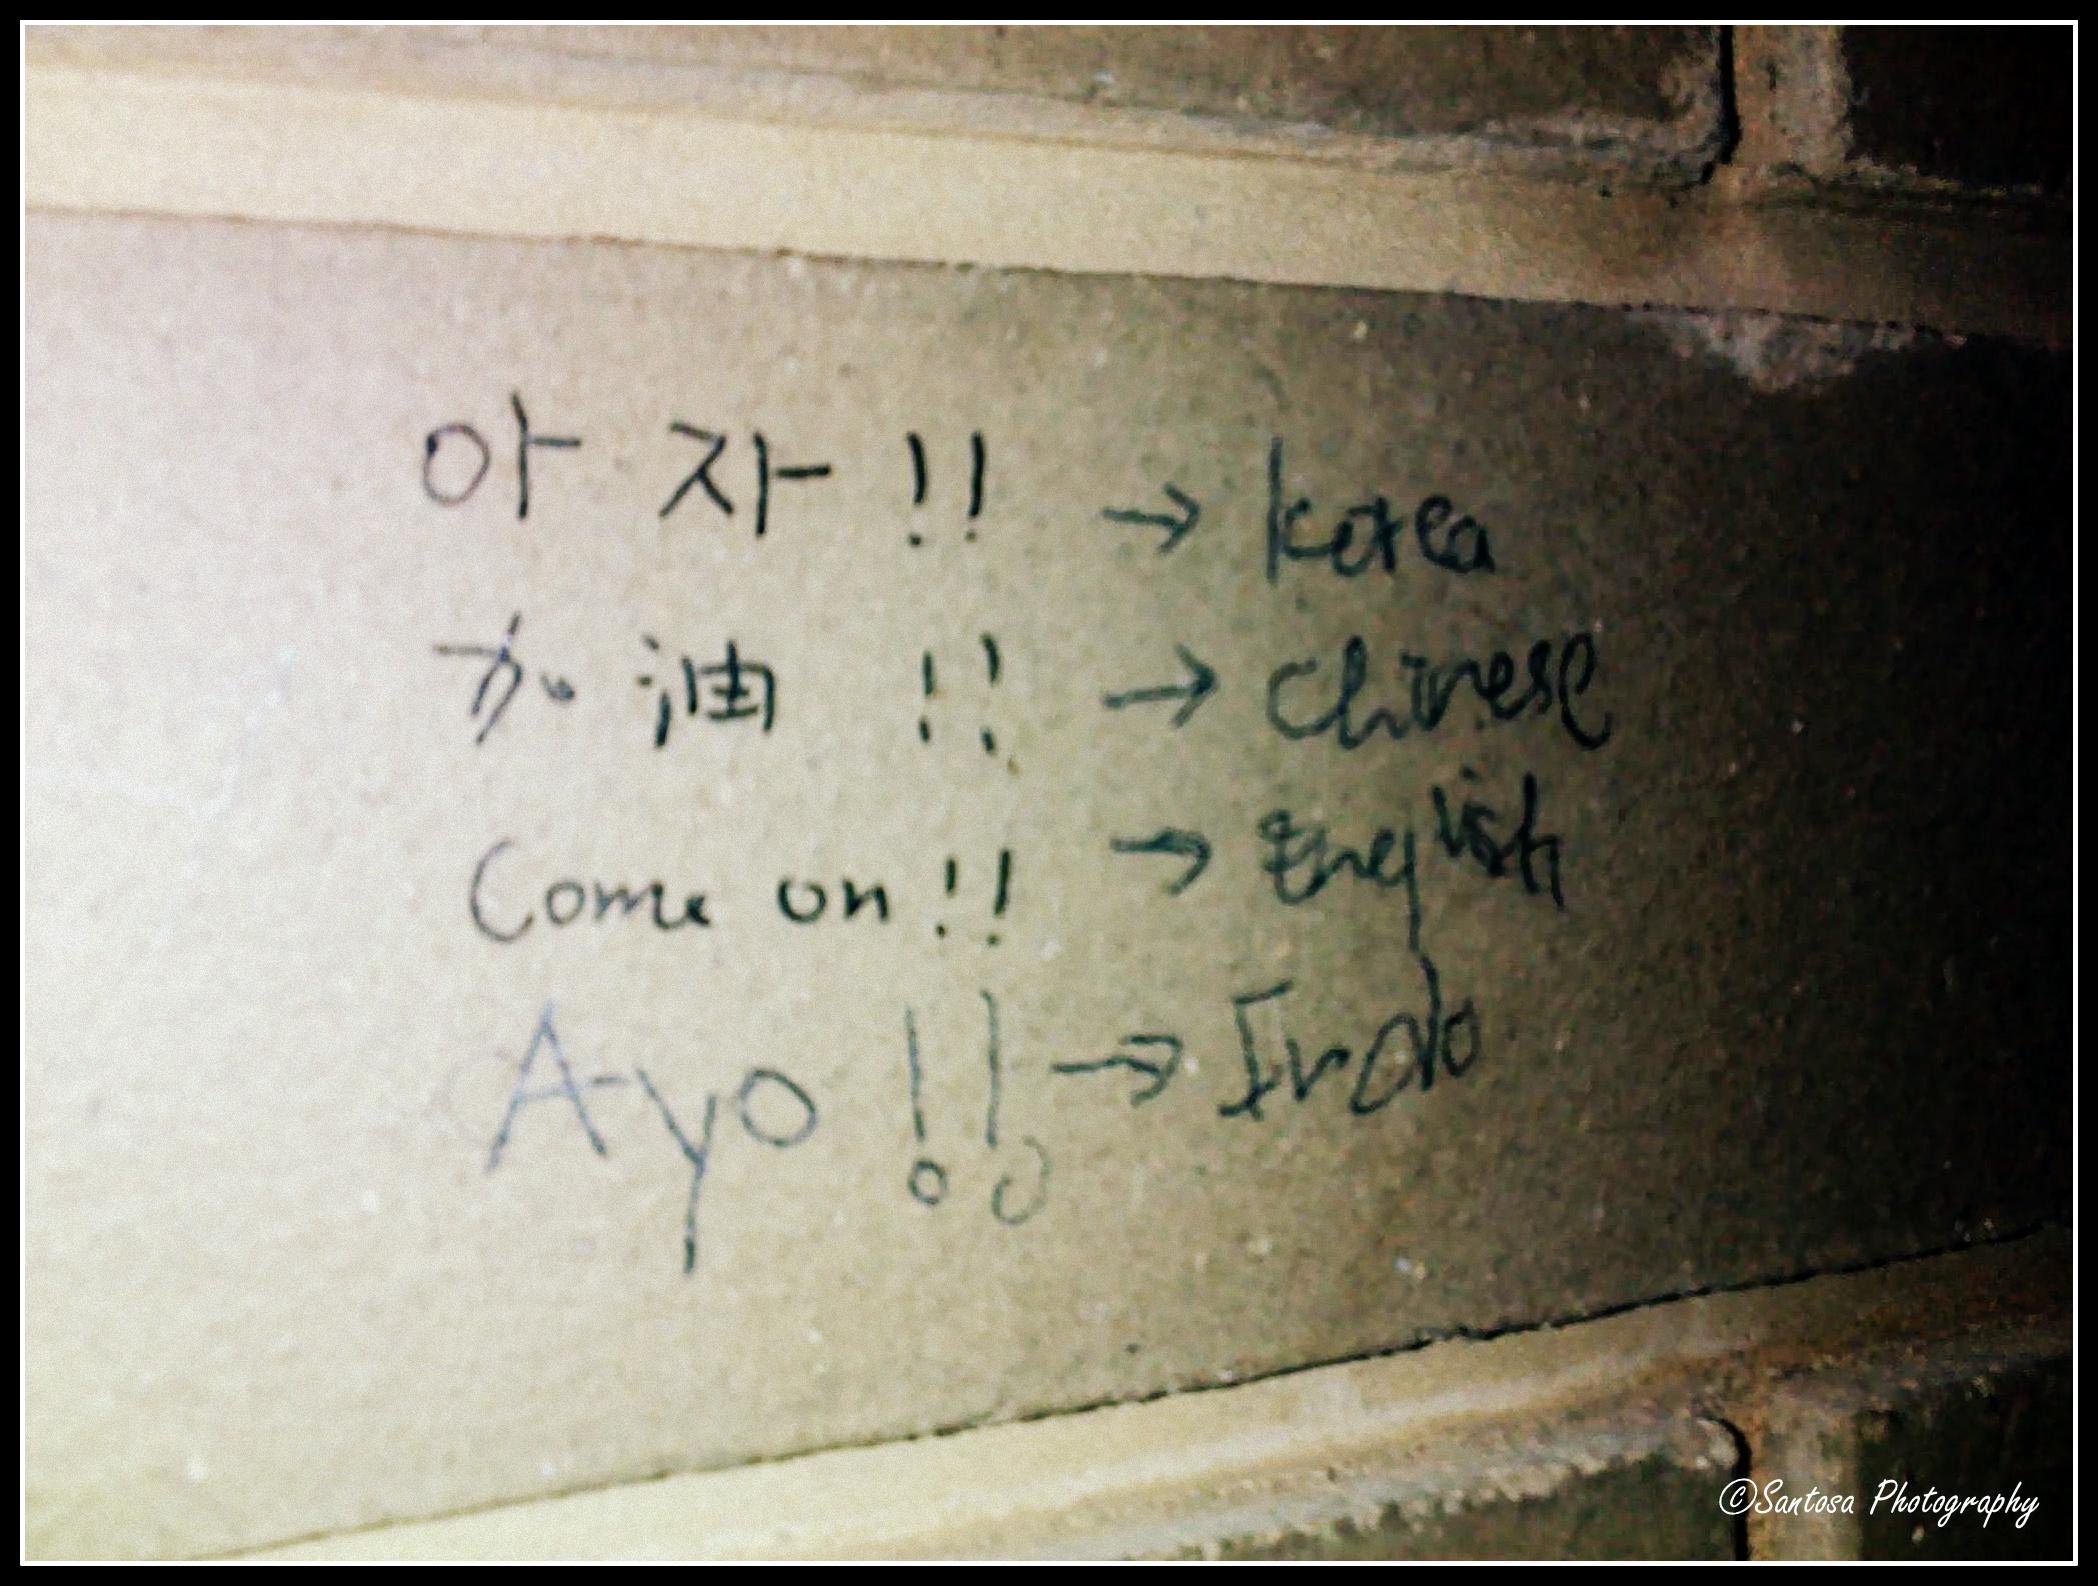 아 자 !! → Korea
加 油 !! → Chinese
Come on !! → English
Ayo !! → Indo
©Santosa Photography